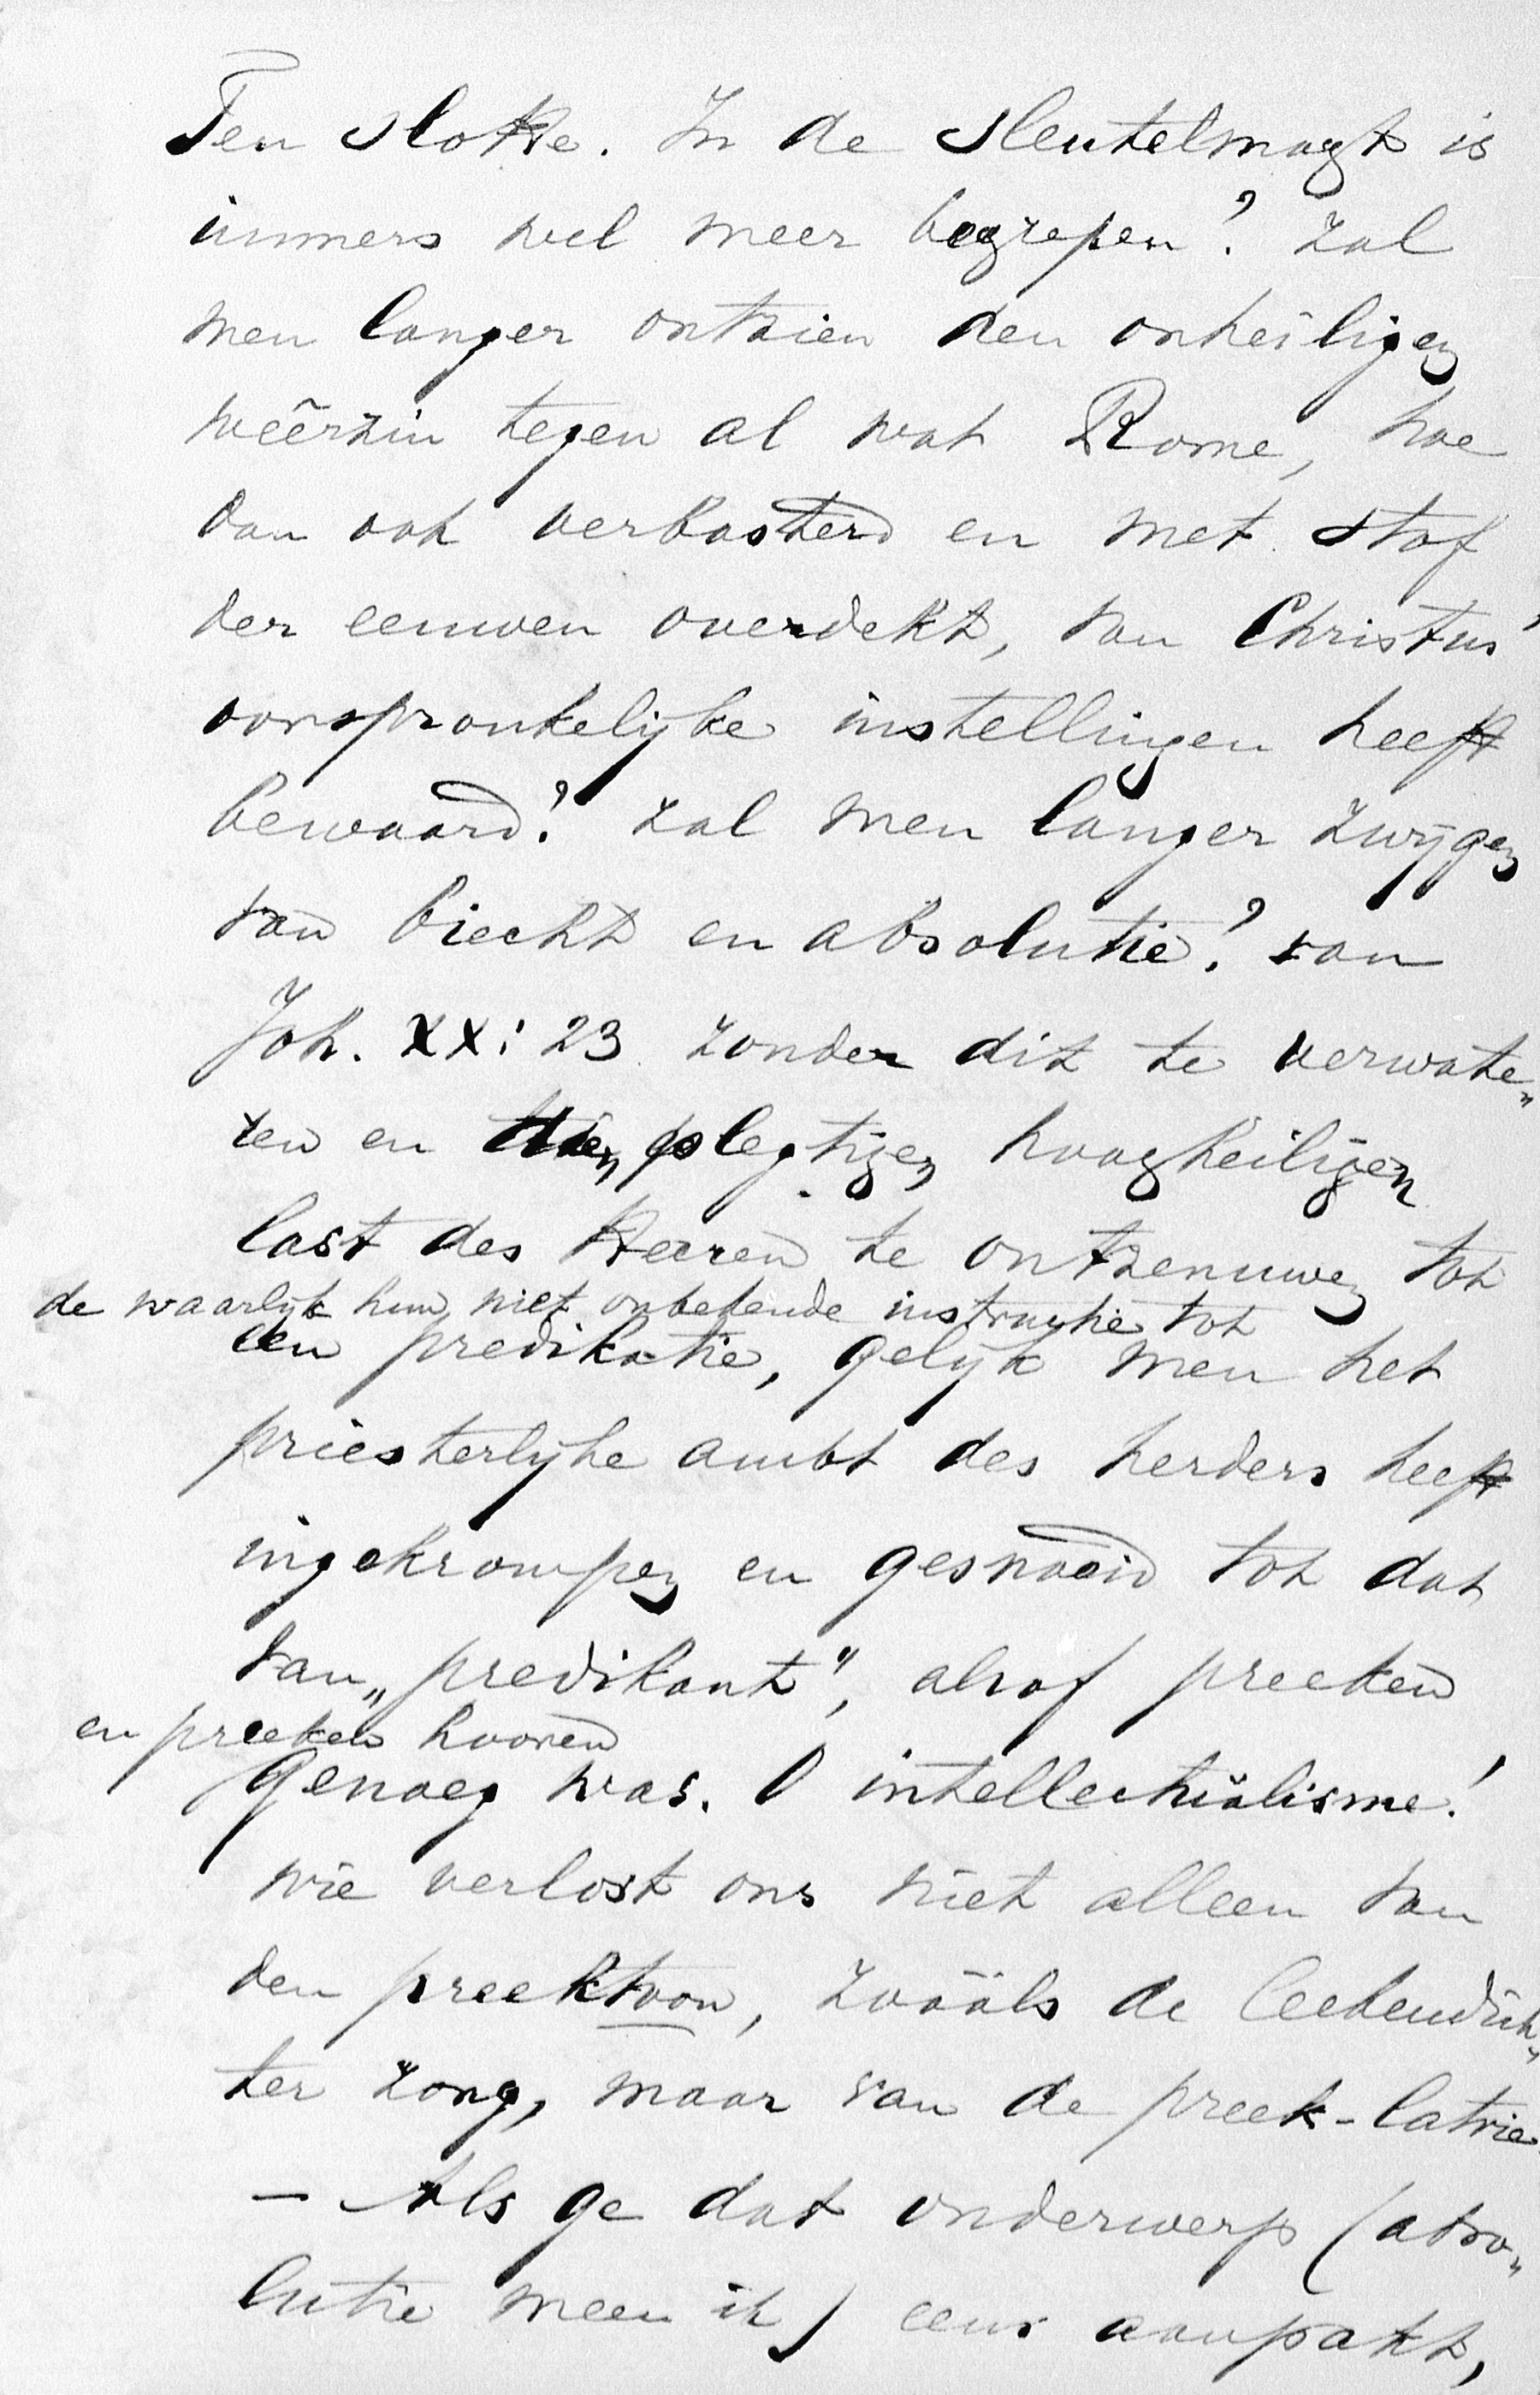 Ten slotte. In de sleutelmagt is
immers wel meer begrepen? Zal
men langer ontzien den onheiligen
weêrzin tegen al wat Rome, hoe
dan ook verbasterd en met stof
der eeuwen overdekt, van Christus'
oorspronkelijke instellingen heeft
bewaard? Zal men langer zwijgen
van biecht en absolutie? van
Joh. XX: 23 zonder dit te verwate„
ren en plegtigen hoogheiligen
last des Heeren te ontzenuwen tot
de waarlijk hun niet onbekende instructie tot
een predikatie, gelijk men het
priesterlijke ambt des herders heeft
ingekrompen en gesnoeid tot dat
van „predikant", alsof preeken
en preeken hooren
genoeg was. O intellectuälisme!
wie verlost ons niet alleen van
den preektoon, zooäls de leekendich„
ter zong, maar van de preek-latrie.
— Als ge dat onderwerp (abso„
lutie meen ik) eens aanpakt,